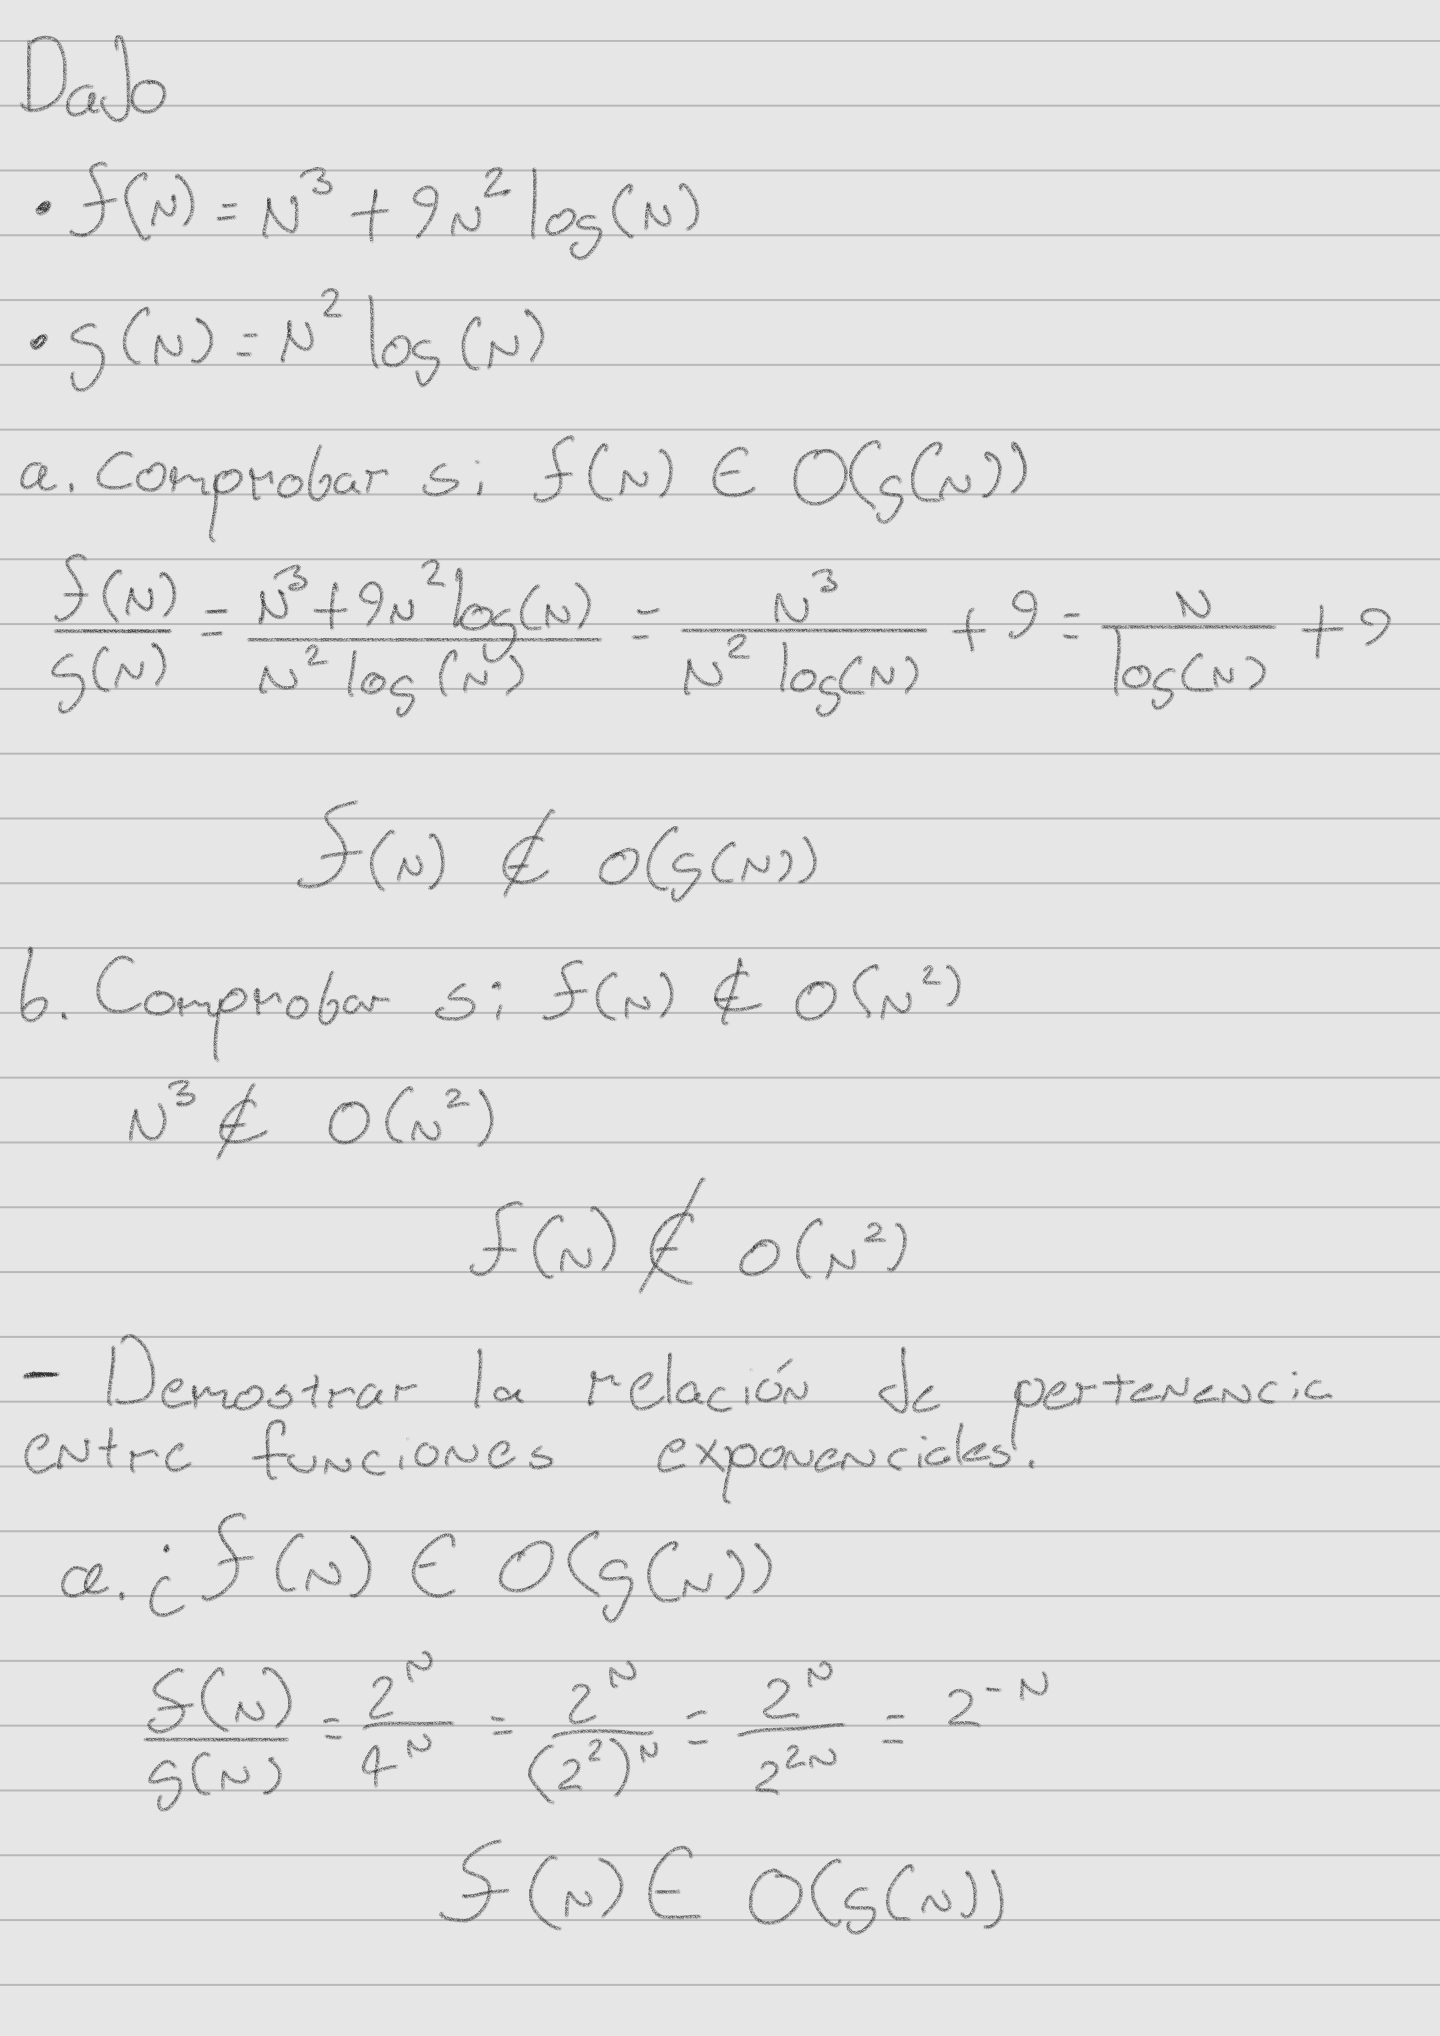 Dado
• f(N) = N³ + 9N² log(N)
• g(N) = N² log(N)
a. Comprobar si f(N) ∈ O(g(N))
f(N)/g(N) = (N³+9N² log(N))/(N² log(N)) = N³/(N² log(N)) + 9 = N/log(N) + 9
f(N) ∉ O(g(N))
b. Comprobar si f(N) ∉ O(N²)
N³ ∉ O(N²)
f(N) ∉ O(N²)
- Demostrar la relación de pertenencia
entre funciones exponenciales.
a. ¿f(N) ∈ O(g(N))
f(N)/g(N) = 2^N/4^N = 2^N/(2²)^N = 2^N/2^2N = 2^-N
f(N) ∈ O(g(N))